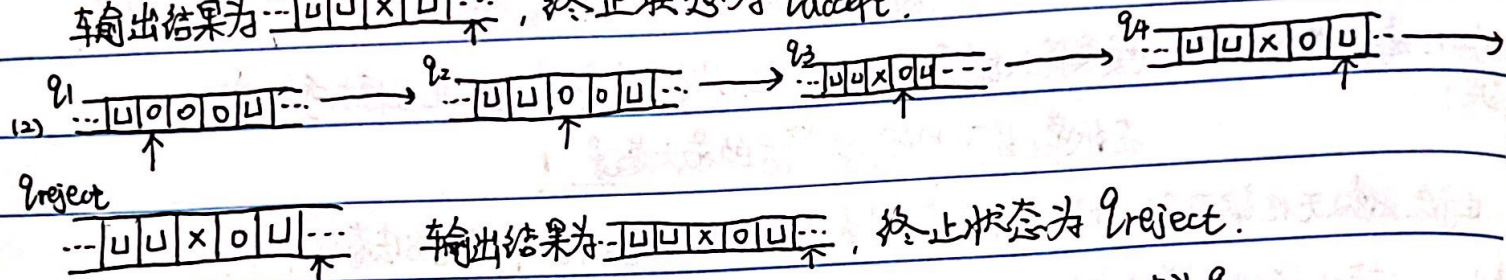 输出结果为 ...|⊔|⊔|x|⊔|... ,终止状态为 qaccept.
(2) q1 ...|⊔|0|0|0|⊔|... → q2 ...|⊔|⊔|0|0|⊔|... → q3 ...|⊔|⊔|x|0|⊔|... → q4 ...|⊔|⊔|x|0|⊔|... →
qreject
...|⊔|⊔|x|0|⊔|... 输出结果为 ...|⊔|⊔|x|0|⊔|... ,终止状态为 qreject.